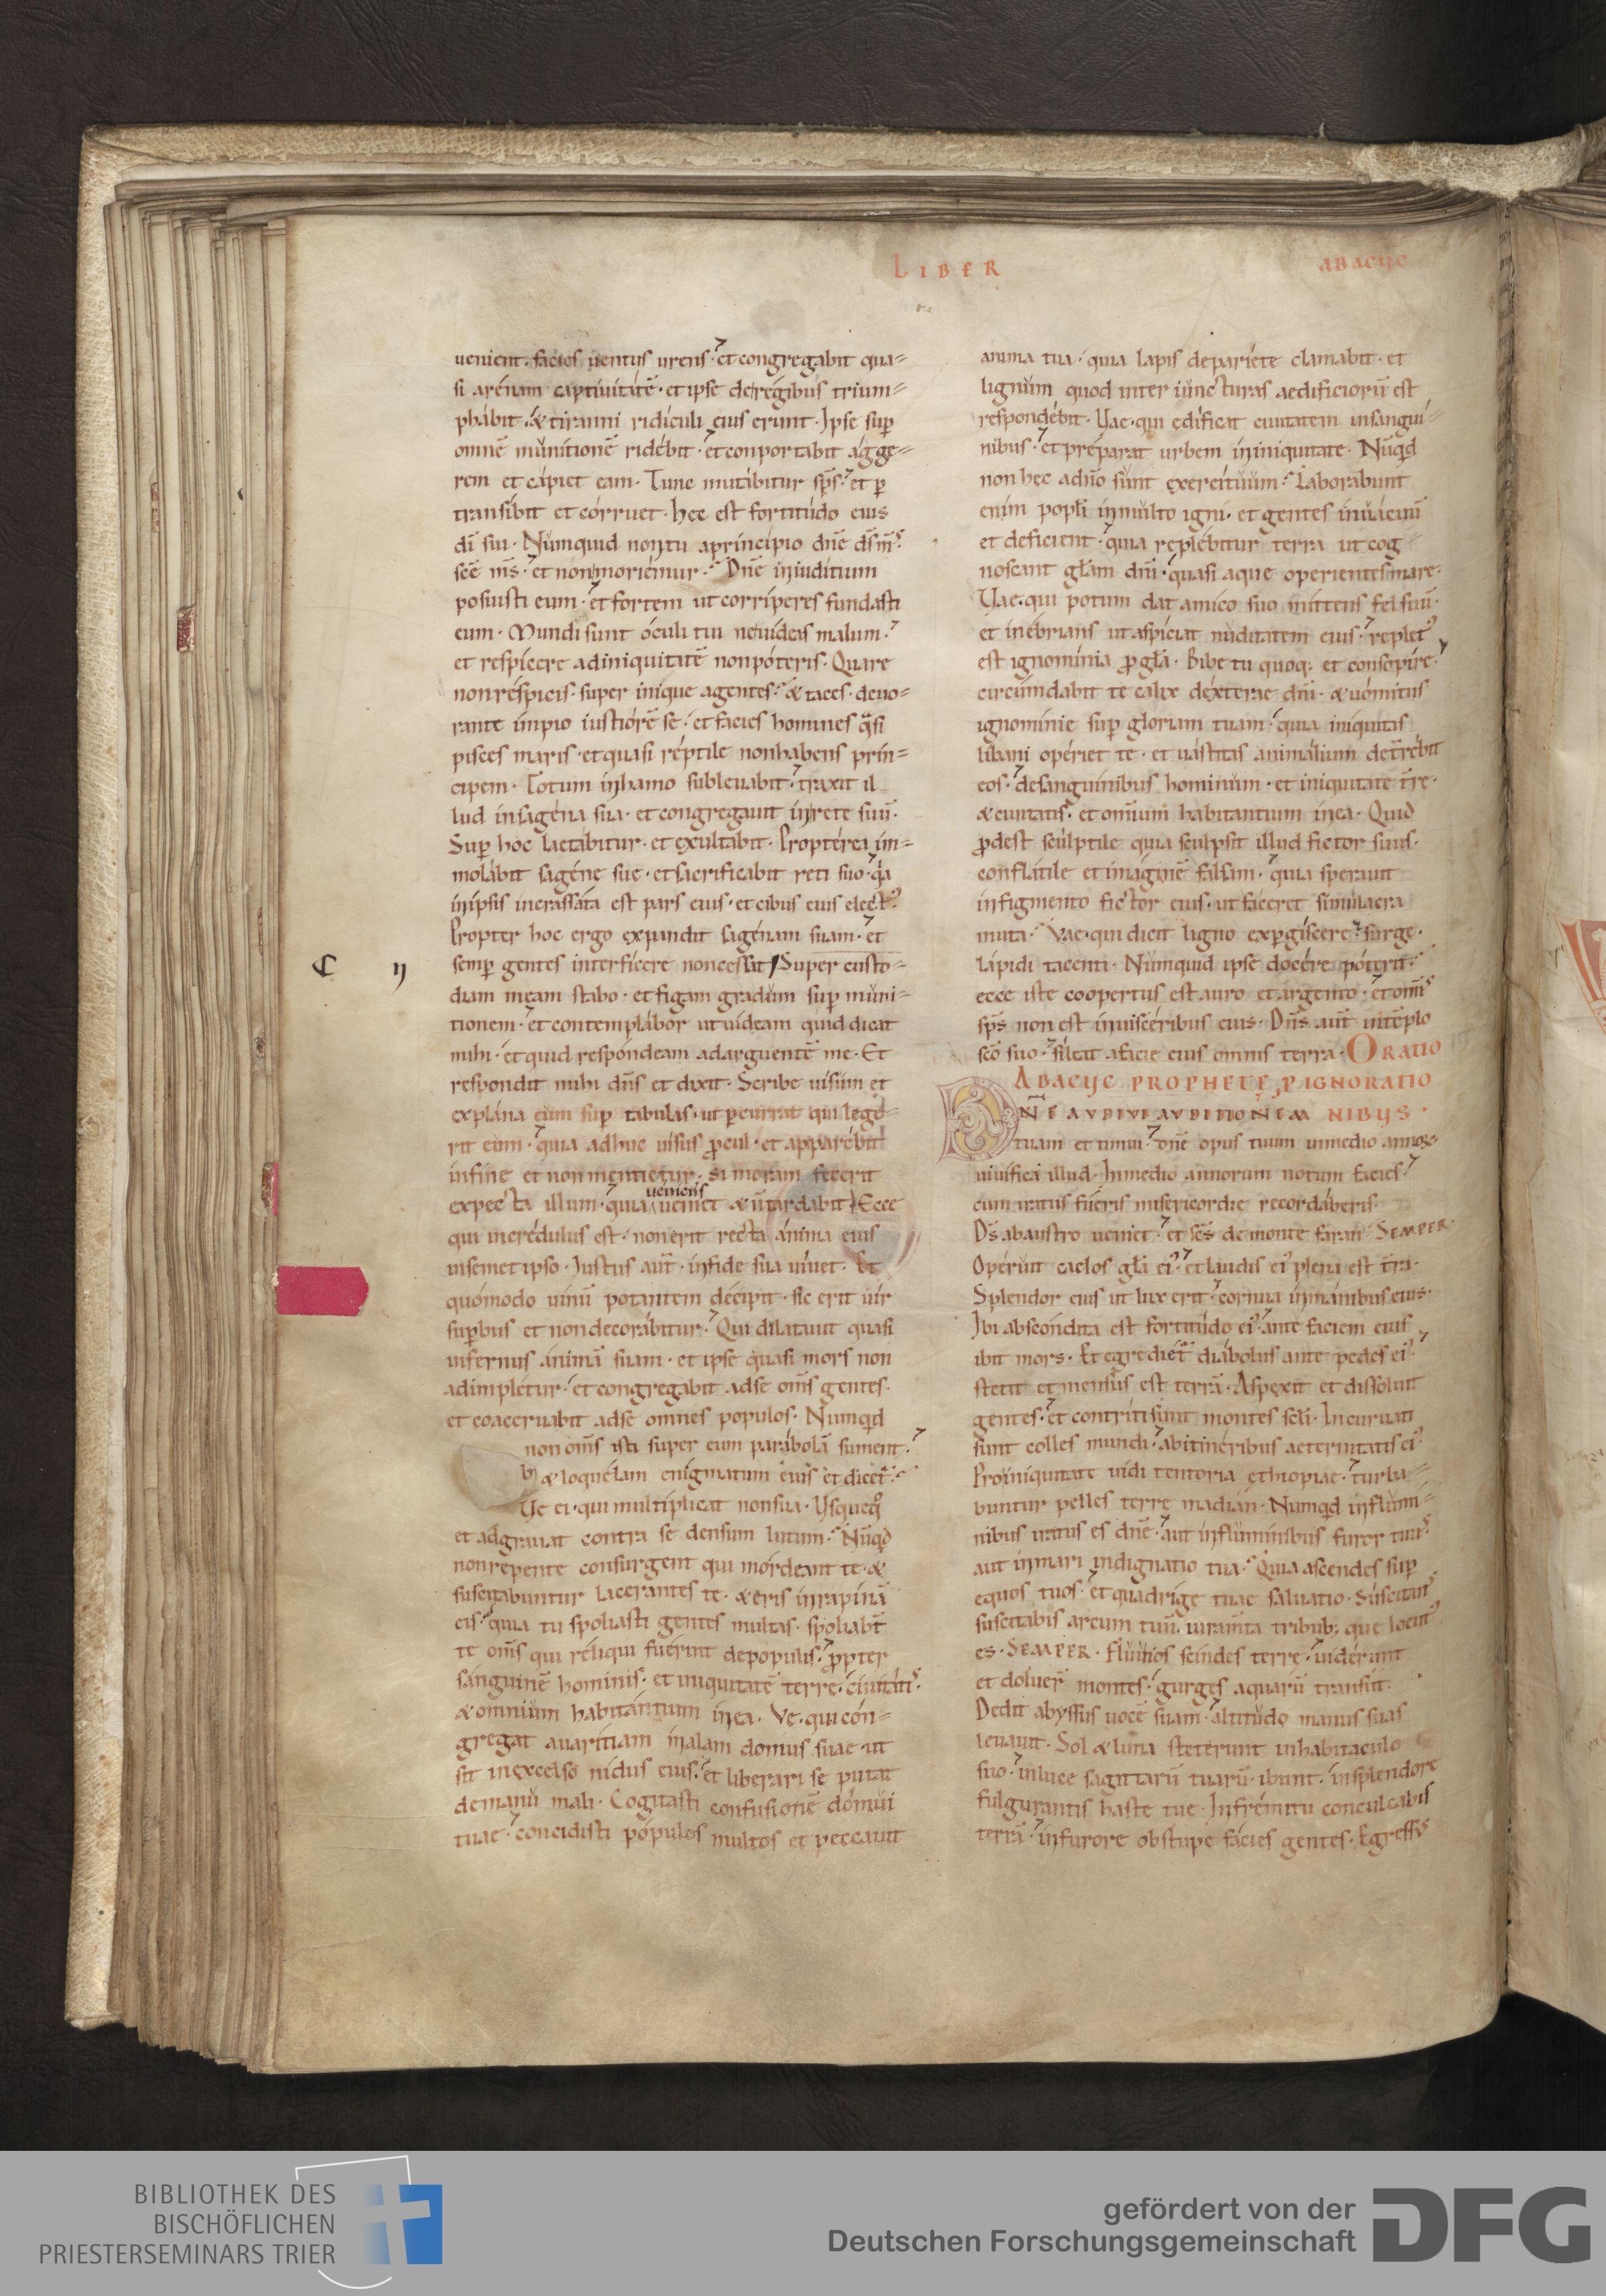 LIBER
ABACUC
uenient. facies uentus urens. et congregabit qua-
si arenam captiuitatē. et ipse de regibus trium-
phabit. & tiranni ridiculi eius erunt. Ipse sup̄
omnē munitionē ridebit. et conportabit agge-
rem et capiet eam. Tunc mutabitur sp̄s. et p̄
transibit et corruet. hęc est fortitudo eius
dī sui. Numquid non tu a principio dn̄e ds̄ m̄s.
sc̄e ms̄. et non moriemur. Dn̄e in iuditium
posuisti eum. et fortem ut corriperes fundasti
eum. Mundi sunt oculi tui ne uideas malum.
et respicere ad iniquitatē non poteris. Quare
non respicis. super inique agentes. & taces. deuo-
rante impio iustiorē se. et facies homines q̄si
pisces maris. et quasi reptile non habens prin-
cipem. Totum in hamo subleuabit. traxit il
lud in sagena sua. et congregauit in rete suū.
Sup̄ hoc laetabitur. et exultabit. Propterea im-
molabit sagene suę. et sacrificabit reti suo. q̄a
in ipsis incrassata est pars eius. et cibus eius elect᾽.
Propter hoc ergo expandit sagenam suam. et
semp̄ gentes interficere non cessat. Super custo-
C II
diam meam stabo. et figam gradum sup̄ muni-
tionem. et contemplabor ut uideam quid dicat
mihi. et quid respondeam ad arguentē me. Et
respondit mihi dn̄s et dixit. Scribe uisum et
explana eum sup̄ tabulas. ut p̄currat qui lege-
rit eum. quia adhuc uisus p̄cul. et apparebit
in fine et non mentietur. Si moram fecerit
expecta illum. quia ueniens ueniet & n̄ tardabit. Ecce
qui incredulus est. non erit recta anima eius
in semet ipso. Iustus aūt. in fide sua uiuet. Et
quomodo uinū potantem decipit. sic erit uir
sup̄bus et non decorabitur. Qui dilatauit quasi
infernus animā suam. et ipse quasi mors non
adimpletur. et congregabit ad se om̄s gentes.
et coaceruabit ad se omnes populos. Numqd
non om̄s isti super eum parabolā sument.
& loquelam enigmatum eius et dicet᾽.
Ve ei. qui multiplicat non sua. Usqueq̊
et adgrauat contra se densum lutum. Nūqd
non repente consurgent qui mordeant te. &
suscitabuntur lacerantes te. & eris in rapinā
eis. quia tu spoliasti gentes multas. spoliabt̄
te om̄s qui reliqui fuerint de populis. p̄pter
sanguinē hominis. et iniquitatē terre. ciuitati᾽.
& omnium habitantium in ea. Vę. qui con-
gregat auaritiam malam domus suae. ut
sit in excelso nidus eius. et liberari se putat
de manu mali. Cogitasti confusionē domui
tuae. concidisti populos multos et peccauit
anima tua. quia lapis de pariete clamabit. et
lignum quod inter iuncturas aedificiorū est
respondebit. Vae. qui ędificat ciuitatem in sangui-
nibus. et preparat urbem in iniquitate. Nūqd
non hęc a dn̄o sunt exercituum. Laborabunt
enim popl̄i in multo igni. et gentes in uacuū
et deficient. quia replebitur terra ut cog-
noscant glām dn̄i. quasi aque operientes mare.
Vae. qui potum dat amico suo mittens fel suū.
et inebrians ut aspiciat nuditatem eius. replet᾽
est ignominia p̄ glā. Bibe tu quoq; et consopire.
circumdabit te calix dexterae dn̄i. & uomitus
ignominie sup̄ gloriam tuam. quia iniquitas
libani operiet te. et uastitas animalium det̄rebit
eos. de sanguinibus hominum. et iniquitate t̄re.
& ciuitatis. et omnium habitantium in ea. Quid
p̄dest sculptile quia sculpsit illud fictor suus.
conflatile et imaginē falsam. quia sperauit
in figmento fictor eius. ut faceret simulacra
muta. Vae. qui dicit ligno expgiscere. surge.
lapidi tacenti. Numquid ipse docere poterit.
ecce iste coopertus est auro et argento. et om̄is
sp̄s non est in uisceribus eius. Dn̄s aūt in tēplo
sc̄o suo. sileat a facie eius omnis terra. ORATIO
ABACUC PROPHETE, P IGNORATIO
DN̄E AUDIUI AUDITIONEM NIBUS.
tuam et timui. dn̄e opus tuum in medio annoꝝ
uiuifica illud. In medio annorum notum facies.
cum iratus fueris misericordie recordaberis.
Ds̄ ab austro ueniet. et sc̄s de monte faran SEMPER.
Operuit caelos glā ei᾽. et laudis ei᾽ plena est t̄ra.
Splendor eius ut lux erit. cornua in manibus eius.
Ibi abscondita est fortitudo ei᾽. ante faciem eius
ibit mors. Et egrediet᾽ diabolus ante pedes ei᾽.
stetit et mensus est terrā. Aspexit et dissoluit
gentes. et contriti sunt montes scl̄i. Incuruati
sunt colles mundi. ab itineribus aeternitatis ei᾽.
Pro iniquitate uidi tentoria ethiopiae. turba-
buntur pelles terrę madian. Numqd in flumi-
nibus iratus es dn̄e. aut in fluminibus furor tuus.
aut in mari indignatio tua. Quia ascendes sup̄
equos tuos. et quadrige tuae saluatio. Suscitans
suscitabis arcum tuū. iuram̄ta tribub; que locut᾽
es. SEMPER. fluuios scindes terre. uiderunt
et doluer̄ montes. gurges aquarū transiit.
Dedit abyssus uocē suam. altitudo manus suas
leuauit. Sol & luna steterunt in habitaculo
suo. in luce sagittarū tuarū. ibunt. in splendore
fulgurantis haste tue. In fremitu conculcabis
terrā. in furore obstupe facies gentes. Egress᾽
BIBLIOTHEK DES
BISCHÖFLICHEN
PRIESTERSEMINARS TRIER
gefördert von der
Deutschen Forschungsgemeinschaft
DFG